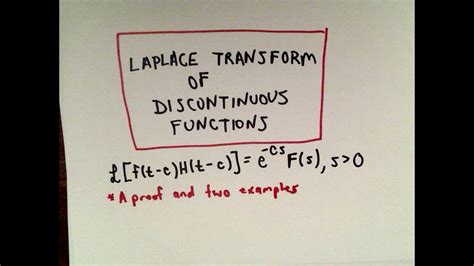 LAPLACE TRANSFORM
OF
DISCONTINUOUS
FUNCTIONS
ℒ[f(t-c)H(t-c)] = e^{-cs} F(s), s>0
*A proof and two examples